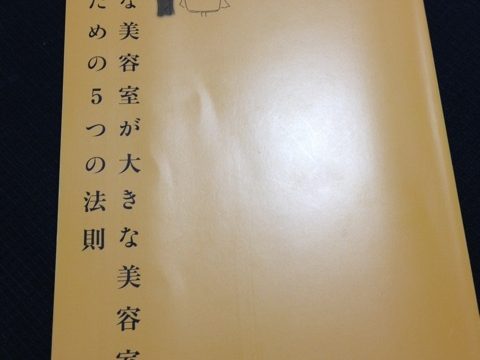 な美容室が大きな美容室
ための5つの法則